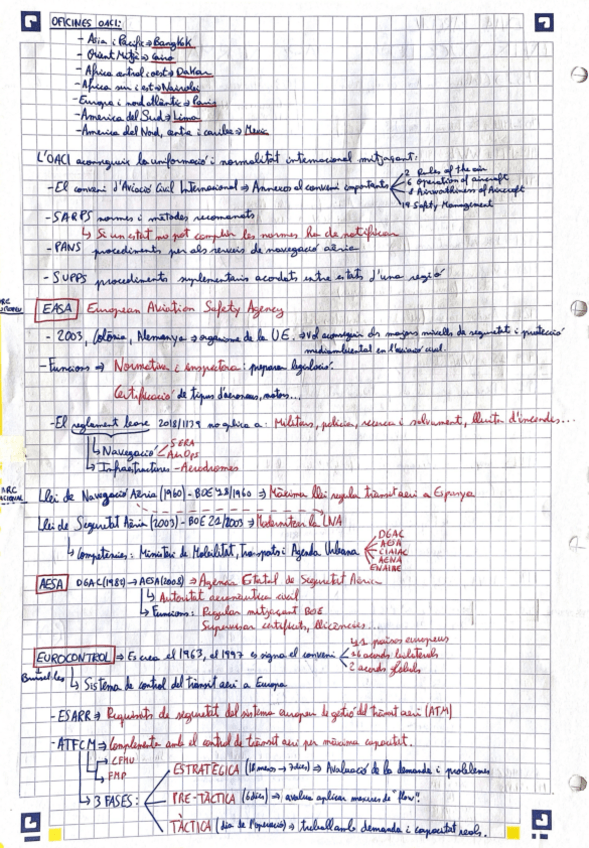 OFICINES OACI:
- Asia i Pacífic ⇒ Bangkok
- Orient Mitjà ⇒ Cairo
- Africa central i oest ⇒ Dakar
- Africa sur i est ⇒ Nairobi
- Europa i nord atlàntic ⇒ Paris
- America del Sud ⇒ Lima
- America del Nord, centre i caribe ⇒ Mexic
L'OACI aconsegueix la uniformació i normalitat internacional mitjaçant:
2 Rules of the air
- El conveni d'Aviació Civil Internacional ⇒ Annexos al conveni importants
6 Operation of aircraft
8 Airworthiness of Aircraft
19 Safety Management
- SARPS normes i mètodes recomanats
↳ Si un estat no pot complir les normes ha de notificar
- PANS procediments per als serveis de navegació aèria
- SUPPS procediments suplementaris acordats entre estats d'una regió
EASA European Aviation Safety Agency
- 2003, Colònia, Alemanya ⇒ organisme de la UE. ⇒ vol aconseguir els majors nivells de seguretat i protecció
mediambiental en l'aviació civil.
- Funcions ⇒ Normativa i inspectora: preparen legislació.
Certificació de tipus d'aeronaus, motors...
- El reglament base 2018/1139 no aplica a: Militars, policia, recerca i salvament, lluita d'incendis...
↳ Navegació
SERA
AirOps
↳ Infraestructures - Aerodromes
Llei de Navegació Aèria (1960) - BOE 48/1960 ⇒ Màxima llei regula trànsit aeri a Espanya
Llei de Seguretat Aèria (2003) - BOE 21/2003 ⇒ Modernitzar la LNA
↳ Competències: Ministeri de Mobilitat, Transports i Agenda Urbana
DGAC
AESA
CIAIAC
AENA
ENAIRE
AESA DGAC (1987) → AESA (2008) ⇒ Agencia Estatal de Seguretat Aèria
↳ Autoritat aeronàutica civil
↳ Funcions: Regular mitjaçant BOE
Supervisar certificats, llicències...
EUROCONTROL ⇒ Es crea el 1963, el 1997 es signa el conveni
41 països europeus
acords bilaterals
2 acords globals
Brussel·les
↳ Sistema de control del trànsit aeri a Europa
- ESARR ⇒ Requisits de seguretat del sistema europeu de gestió del trànsit aeri (ATM)
- ATFCM ⇒ Complementa amb el control de trànsit aeri per màxima capacitat.
→ CFMU
→ FMP
↳ 3 FASES:
ESTRATÈGICA (18 mesos → 7 dies) ⇒ Avaluació de la demanda i problemes
PRE-TÀCTICA (6 dies) ⇒ avalua aplicar mesures de "flow".
TÀCTICA (dia de l'operació) ⇒ treball amb demanda i capacitat reals.